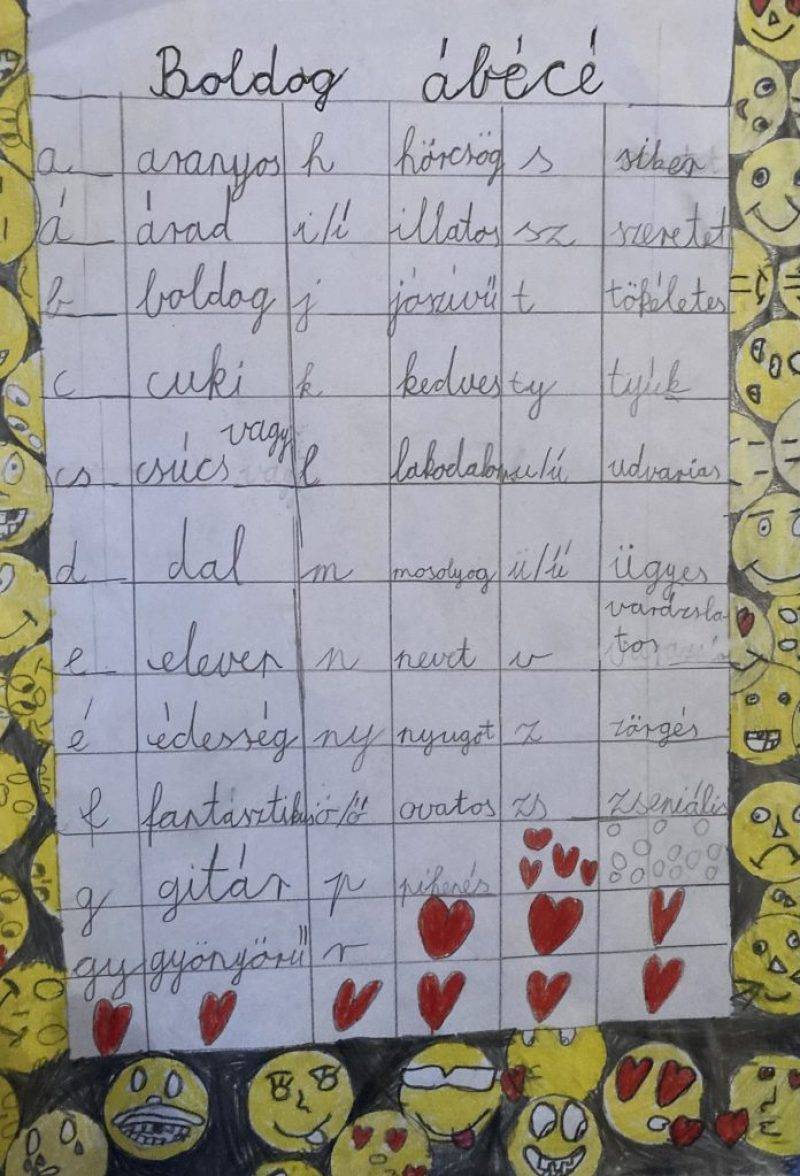 Boldog ábécé
a aranyos h hörcsög s siker
á árad i/í illatos sz szeretet
b boldog j jószívű t tökéletes
c cuki k kedves ty tyúk
vagy
cs csúcs l lakodalom u/ú udvarias
d dal m mosolyog ü/ű ügyes
varázsla-
e eleven n nevet v tos
é édesség ny nyugöt z zörgés
f fantásztikus ö/ő ovatos zs zseniális
g gitár p pihenés
gy gyönyörű r